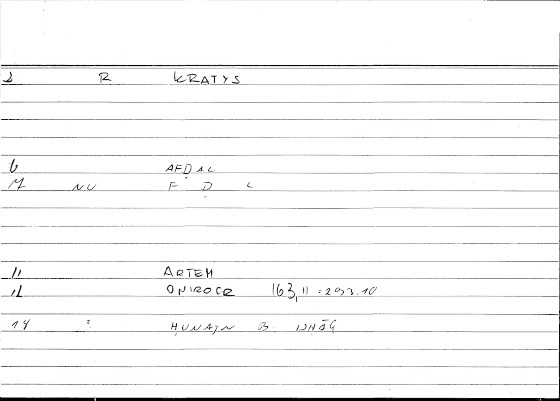 2 R KRATYS
6 AFḌAL
7 NU F Ḍ L
11 ARTEM
12 ONIROCR 163,11 = 293.10
14 ? ḤUNAYN B. ISḤĀQ